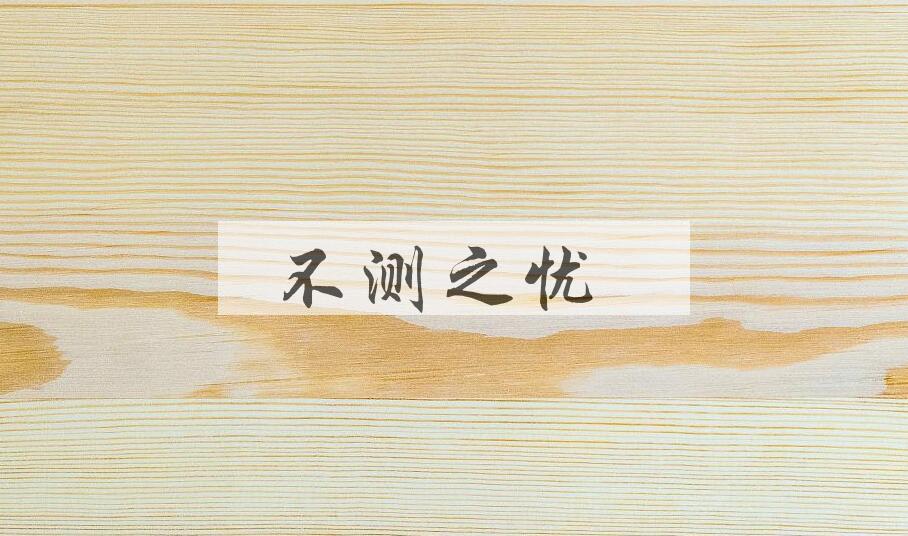 不测之忧